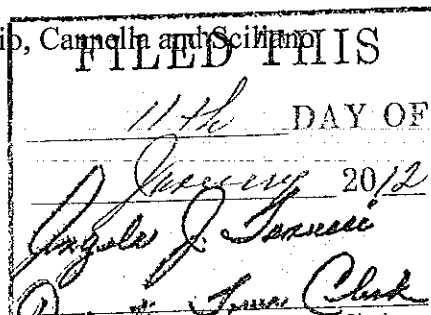 io, Cannella and Sciliano
FILED THIS
11th DAY OF
January 2012
Angela J.
Town Clerk